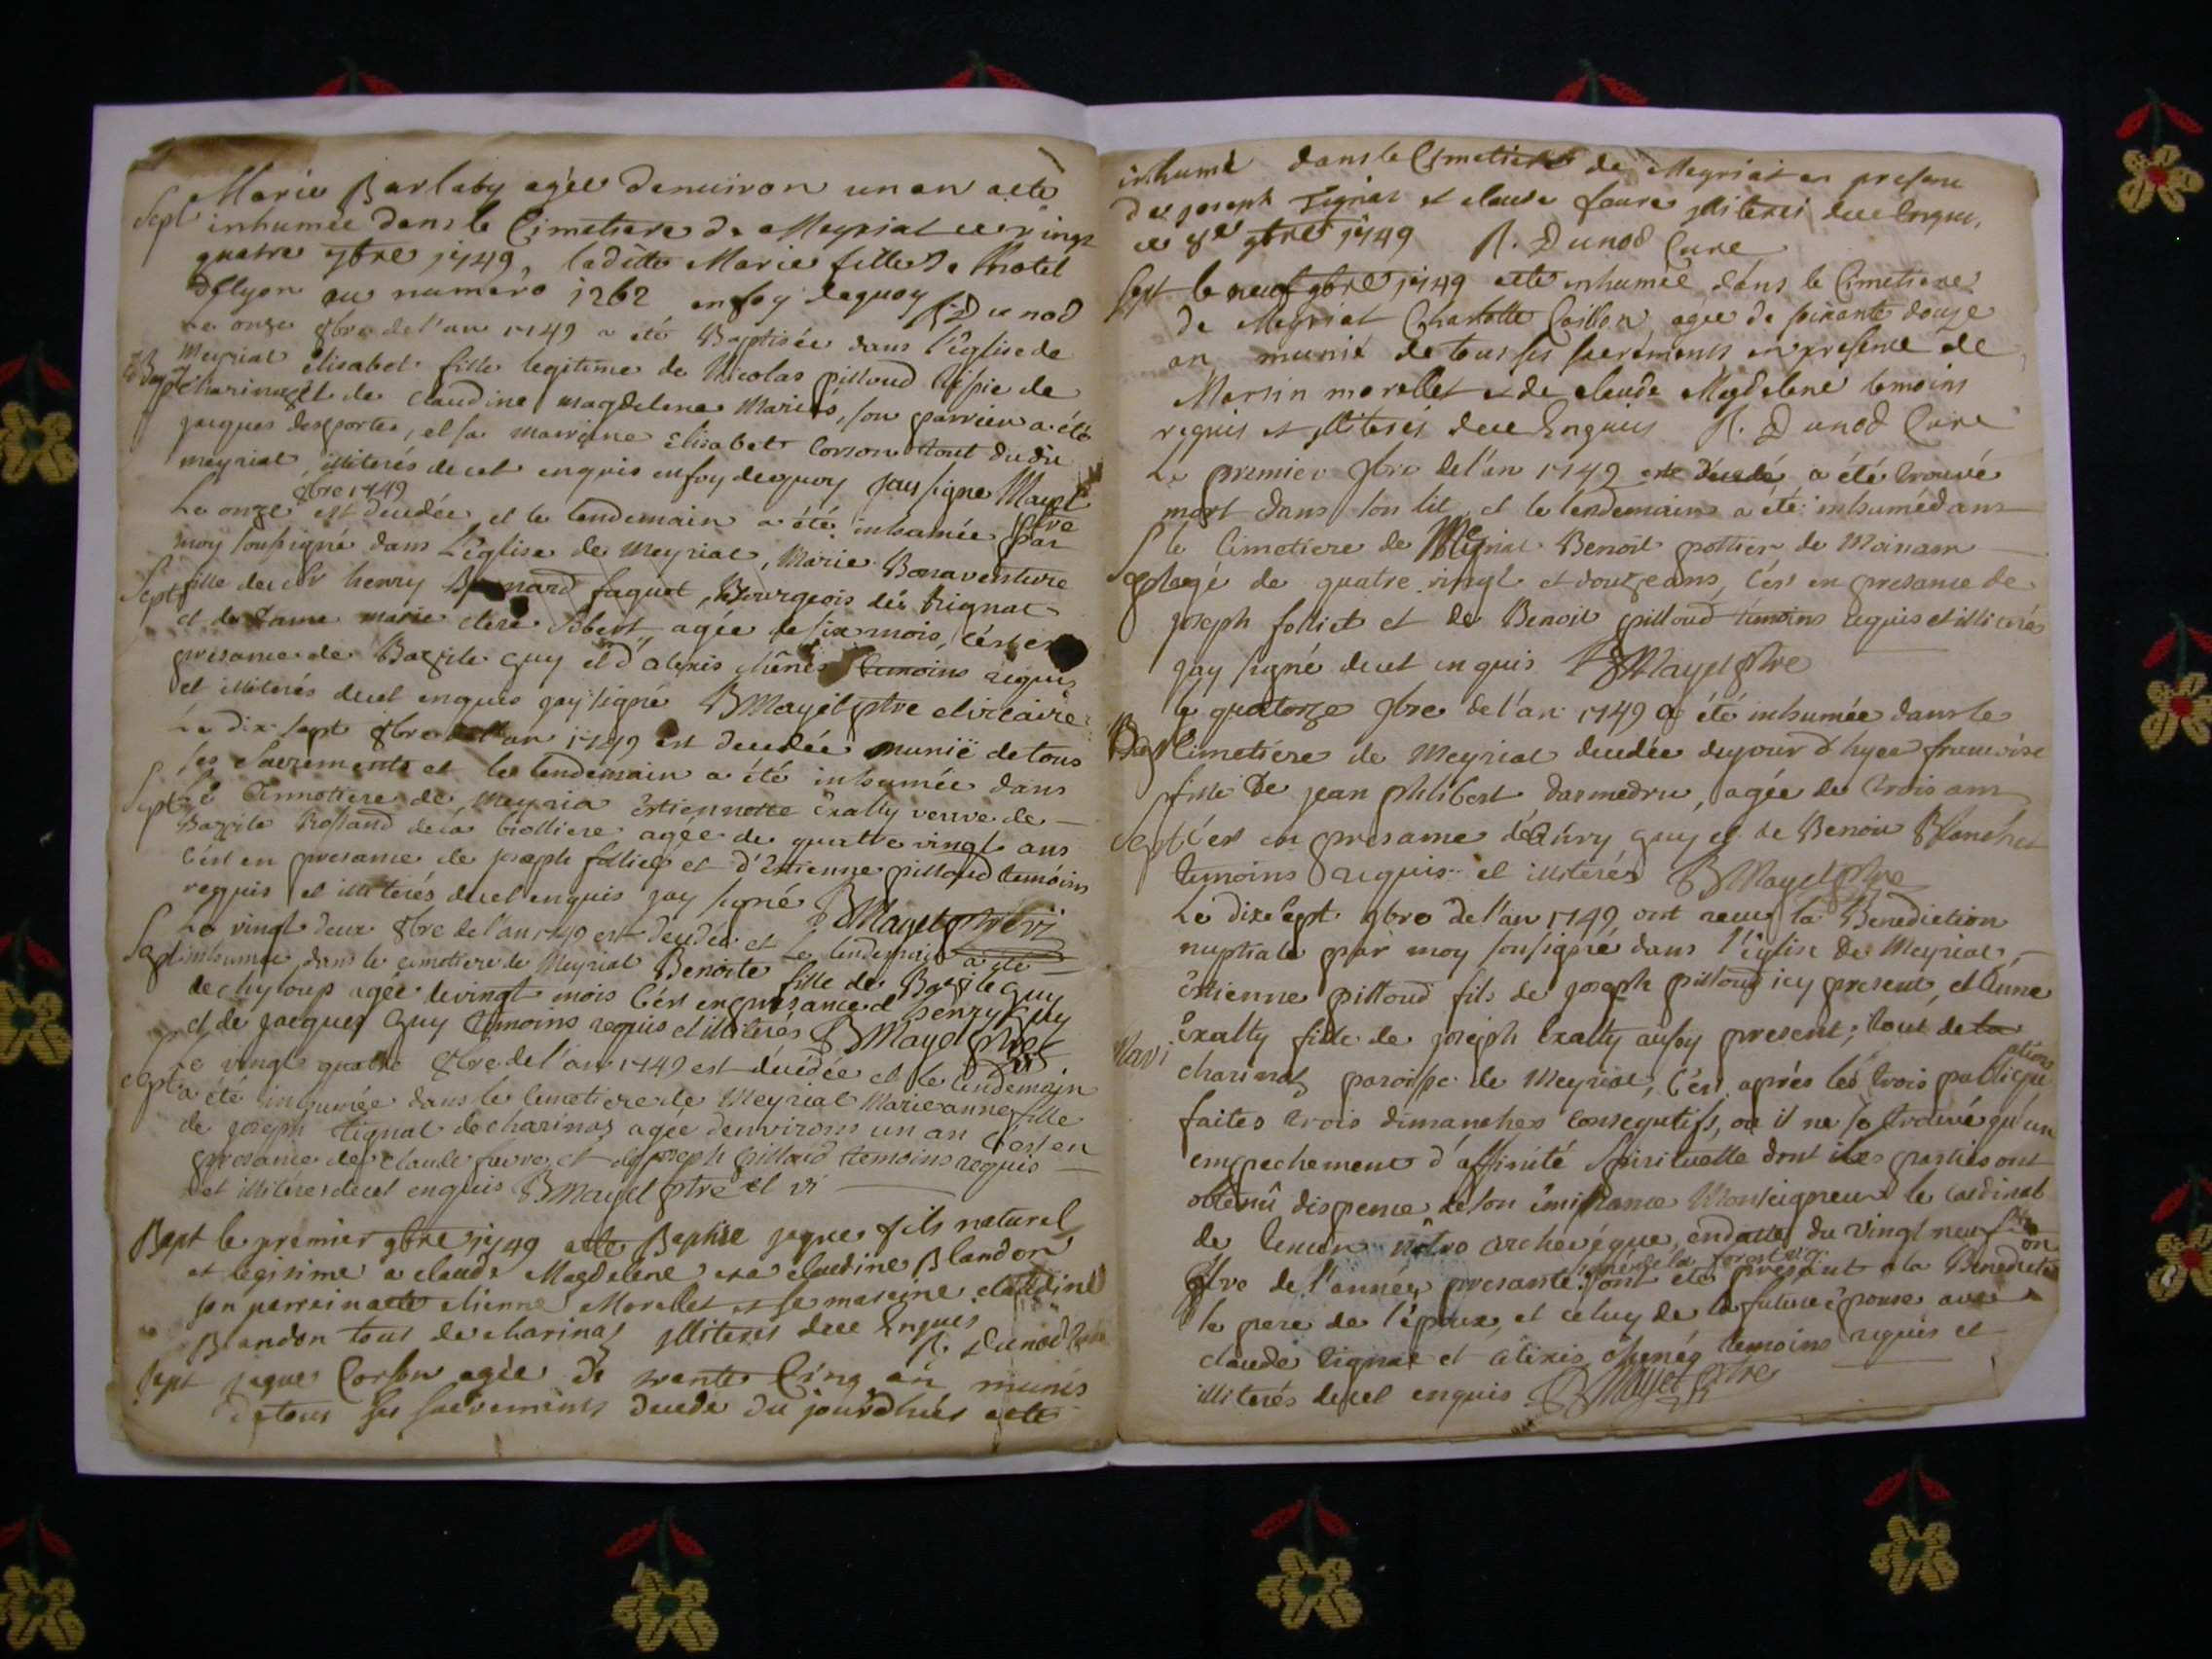 Marie Barlaby agée denuiron un an aete
Sept inhumée dans le Cimetiere de Meyriat ce vingt
quatre 7bre 1749, ladite Marie fille de l'hotel
de lyon au numero 1262 en foy dequoy R. Dunod
Le onze 8bre de l'an 1749 a été Baptisée dans l'église de
Bapt Meyriat élisabet fille legitime de Nicolas pilloud de
charinaz et de claudine magdelene Mariés, son parrein a été
jacques desportes, et sa marreine Elisabet Corson tout du dit
meyriat, illiterés de cet enquis en foy dequoy jay signe Mayet
ptre
Le onze 8bre 1749 est decedée et le lendemain a été inhumée par
moy soussigné dans L'église de Meyriat, Marie Bonaventure
Sept fille de sr henry faguet, Bourgeois de tignat
et de dame marie clere Sibert, agée de six mois, c'est en
presance de Bazile Guy et d'alexis chênéz temoins requis
et illiterés decet enquis jay signé BMayet ptre et vicaire
Le dix sept 8bre de l'an 1749 est decedée munië de tous
ses Sacrements et le lendemain a été inhumée dans
Sept Le Cimmetiere de Meyria Estiennette Exatty veuve de
Bazile Rolland de la agée de quatre vingt ans
C'est en presance de joseph folliet et d'Estienne pilloud temoins
requis et illiterés decet enquis jay signé BMayet ptre vi
Le vingt deux 8bre de l'an 1749 est decedée et le lendemain a été
Sept inhumée dans le cimetiere de Meyriat Benoite fille de Bazile Guy
de chyloup agée de vingt mois C'est en presance d'henry Guy
et de jacques Guy temoins requis et illiterés BMayet ptre
vi
Le vingt quatre 8bre de l'an 1749 est décédée et le lendemain
Sept a été inhumée dans le Cimetiere de Meyriat Marieanne fille
de joseph tignat de charinaz agée denvirons un an C'est en
presance de claude fuvre et de joseph pilloud temoins requis
et illiteres decet enquis BMayet ptre et vi
Bapt le premier 9bre 1749 aete Baptise jaque fils naturel
et legitime a claude Magdelene et a claudine Blandon
son parrein aete etienne Morellet et sa mareine claudine
Blandon tous de charinaz jlliteres dece Enquis R. Dunod Cure
Sept jaque Corbu agée de trente Cinq an munis
de tous ses sacrements decede du jourdhuis aete
inhumé dans le Cimetiere de Meyriat en presence
de joseph Tignat et claude faure jlliteres dece Enquis
ce 8e 9bre 1749 R. Dunod Cure
Sept le neuf 9bre 1749 aete inhumée dans le Cimetiere
de Meyriat Charlotte Caillon agée de soixante douze
an munie de tous ses sacréments en presence de
Martin morellet et de claude Magdelene temoins
requis et jlliterés dece Enquis R. Dunod Cure
Le premier 9bre de l'an 1749 este decedé a été trouvé
mort dans son lit et le lendemain a été inhumé dans
Sept le Cimetiere de Meyriat Benoit pottier de Moinam
agé de quatre vingt et douze ans, c'est en presance de
joseph folliet et de Benoit pilloud temoins requis et illiterés
jay signé decet enquis BMayet ptre
le quatorze 9bre de l'an 1749 a été inhumée dans le
Bapt Cimetiere de Meyriat decedée du jour d'hyer francoise
fille de jean philibert darmedru, agée de trois ans
Sept C'est en presance de Guy et de Benoit Blanchet
temoins requis et illiterés BMayet ptre
Le dixsept 9bre de l'an 1749 ont receu la Benediction
nuptiale par moy sousigné dans l'église de Meyriat,
Estienne pilloud fils de joseph pilloud icy present, et Anne
Exatty fille de joseph Exatty aussy present; tout de la
Mari charinaz paroisse de Meyriat, c'est aprés les trois publications
faites trois dimanches consequtifs, où il ne se trouvé qu'un
empechement d'affinité Spirituelle dont les parties ont
obtenû dispence de son éminance Monseigneur le cardinal
de tencin nôtre archevéque, endatte du vingt neuf
8bre de l'année presante. ont été présant a la Benediction
le pere de l'époux, et celuy de la future épouse avec
claude tignat et alexis chenéz temoins requis et
illiterés decet enquis BMayet ptre